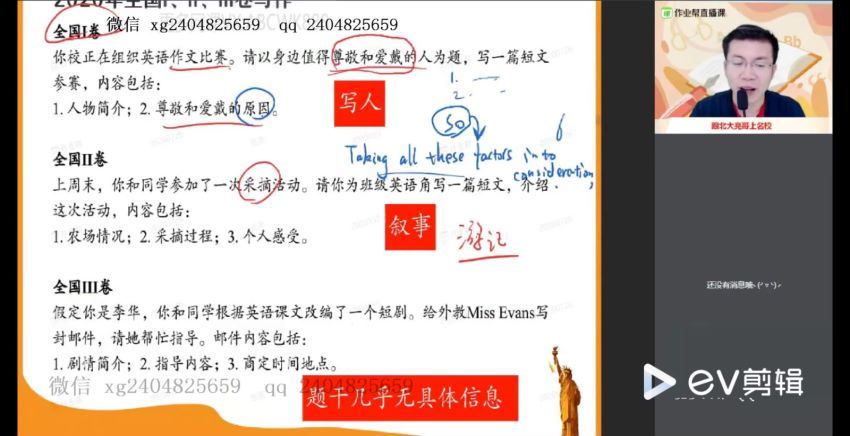 2020年全国I、II、III卷写作
微信 xg2404825659 qq 2404825659
全国I卷
你校正在组织英语作文比赛。请以身边值得尊敬和爱戴的人为题，写一篇短文
参赛，内容包括：
1. 人物简介；2. 尊敬和爱戴的原因。
写人
1.
2.
so
Taking all these factors into
consideration,
全国II卷
上周末，你和同学参加了一次采摘活动。请你为班级英语角写一篇短文，介绍
这次活动，内容包括：
1. 农场情况；2. 采摘过程；3. 个人感受。
叙事
游记
全国III卷
假定你是李华，你和同学根据英语课文改编了一个短剧。给外教Miss Evans写
封邮件，请她帮忙指导。邮件内容包括：
1. 剧情简介；2. 指导内容；3. 商定时间地点。
微信 xg2404825659 qq 2404825659
题干几乎无具体信息
作业帮直播课
Bb
跟北大亮哥上名校
还没有消息哦~
ev剪辑